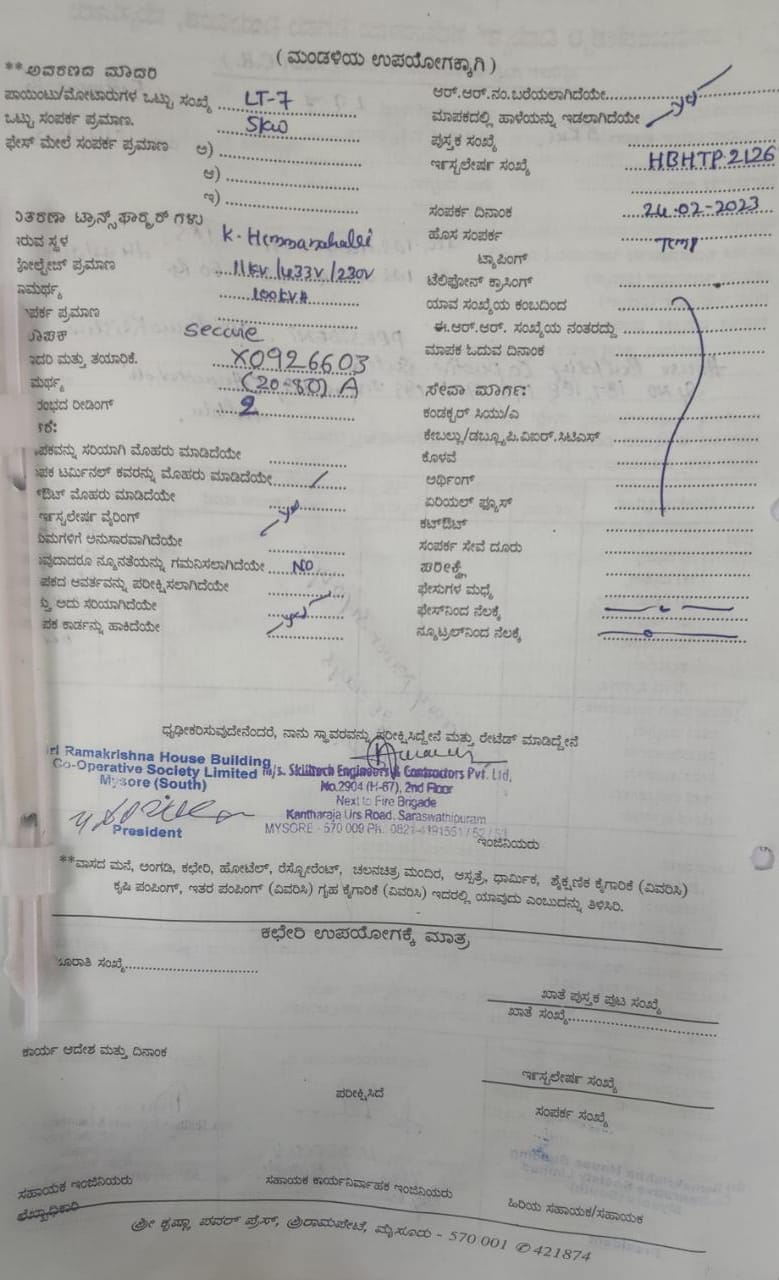 ( ಮಂಡಳಿಯ ಉಪಯೋಗಕ್ಕಾಗಿ )
**ಆವರಣದ ಮಾದರಿ
ಪಾಯಿಂಟು/ಮೋಟಾರುಗಳ ಒಟ್ಟು ಸಂಖ್ಯೆ LT-7
ಒಟ್ಟು ಸಂಪರ್ಕ ಪ್ರಮಾಣ. 5KW
ಫೇಸ್ ಮೇಲೆ ಸಂಪರ್ಕ ಪ್ರಮಾಣ ಅ)
ಆ)
ಇ)
ವಿತರಣಾ ಟ್ರಾನ್ಸ್‌ಫಾರ್ಮರ್ ಗಳು
ಇರುವ ಸ್ಥಳ K. Hemmanahalli
ವೋಲ್ಟೇಜ್ ಪ್ರಮಾಣ 11KV/433V/230V
ಸಾಮರ್ಥ್ಯ 100KVA
ಪರ್ಕ ಪ್ರಮಾಣ
ಮಾಪಕ secure
ಮಾದರಿ ಮತ್ತು ತಯಾರಿಕೆ. X0926603
ಮರ್ಥ್ಯ (20-80) A
ರಂಭದ ರೀಡಿಂಗ್ 2
ಪಕವನ್ನು ಸರಿಯಾಗಿ ಮೊಹರು ಮಾಡಿದೆಯೇ
ಪಕ ಟರ್ಮಿನಲ್ ಕವರನ್ನು ಮೊಹರು ಮಾಡಿದೆಯೇ
ಔಟ್ ಮೊಹರು ಮಾಡಿದೆಯೇ
ಇನ್ಸ್ಟಲೇಷನ್ ವೈರಿಂಗ್ yes
ನಿಯಮಗಳಿಗೆ ಅನುಸಾರವಾಗಿದೆಯೇ
ವುದಾದರೂ ನ್ಯೂನತೆಯನ್ನು ಗಮನಿಸಲಾಗಿದೆಯೇ NO
ಪಕದ ಆವರ್ತವನ್ನು ಪರೀಕ್ಷಿಸಲಾಗಿದೆಯೇ
ತ್ತು ಅದು ಸರಿಯಾಗಿದೆಯೇ yes
ಪಕ ಕಾರ್ಡನ್ನು ಹಾಕಿದೆಯೇ
ಆರ್.ಆರ್.ನಂ.ಬರೆಯಲಾಗಿದೆಯೇ
ಮಾಪಕದಲ್ಲಿ ಹಾಳೆಯನ್ನು ಇಡಲಾಗಿದೆಯೇ yes
ಪುಸ್ತಕ ಸಂಖ್ಯೆ
ಇನ್ಸ್ಟಲೇಷನ್ ಸಂಖ್ಯೆ HBHTP.2126
ಸಂಪರ್ಕ ದಿನಾಂಕ 24.02-2023
ಹೊಸ ಸಂಪರ್ಕ Temp
ಟ್ಯಾಪಿಂಗ್
ಟೆಲಿಫೋನ್ ಕ್ರಾಸಿಂಗ್
ಯಾವ ಸಂಖ್ಯೆಯ ಕಂಬದಿಂದ
ಈ.ಆರ್.ಆರ್. ಸಂಖ್ಯೆಯ ನಂತರದ್ದು
ಮಾಪಕ ಓದುವ ದಿನಾಂಕ
ಸೇವಾ ಮಾರ್ಗ:
ಕಂಡಕ್ಟರ್ ಸಿಯು/ಎ
ಕೇಬಲ್ಲು/ಡಬ್ಲ್ಯೂಪಿ.ವಿಐಆರ್.ಸಿಟಿಎಸ್
ಕೊಳವೆ
ಅರ್ಥಿಂಗ್
ಏರಿಯಲ್ ಫ್ಯೂಸ್
ಕಟ್‌ಔಟ್
ಸಂಪರ್ಕ ಸೇವೆ ದೂರು
ಪರೀಕ್ಷೆ
ಫೇಸುಗಳ ಮಧ್ಯೆ
ಫೇಸ್‌ನಿಂದ ನೆಲಕ್ಕೆ
ನ್ಯೂಟ್ರಲ್‌ನಿಂದ ನೆಲಕ್ಕೆ
ಧೃಢೀಕರಿಸುವುದೇನೆಂದರೆ, ನಾನು ಸ್ಥಾವರವನ್ನು ಪರೀಕ್ಷಿಸಿದ್ದೇನೆ ಮತ್ತು ರೇಟೆಡ್ ಮಾಡಿದ್ದೇನೆ
Sri Ramakrishna House Building
Co-Operative Society Limited
Mysore (South)
President
M/s. Skilltech Engineers & Contractors Pvt. Ltd.
No.2904 (H-67), 2nd Floor
Next to Fire Brigade
Kantharaja Urs Road, Saraswathipuram
MYSORE - 570 009 Ph. 0821-4191551 / 52 / 53
ಇಂಜಿನಿಯರು
**ವಾಸದ ಮನೆ, ಅಂಗಡಿ, ಕಛೇರಿ, ಹೋಟೆಲ್, ರೆಸ್ಟೋರೆಂಟ್, ಚಲನಚಿತ್ರ ಮಂದಿರ, ಆಸ್ಪತ್ರೆ, ಧಾರ್ಮಿಕ, ಶೈಕ್ಷಣಿಕ ಕೈಗಾರಿಕೆ (ವಿವರಿಸಿ)
ಕೃಷಿ ಪಂಪಿಂಗ್, ಇತರ ಪಂಪಿಂಗ್ (ವಿವರಿಸಿ) ಗೃಹ ಕೈಗಾರಿಕೆ (ವಿವರಿಸಿ) ಇದರಲ್ಲಿ ಯಾವುದು ಎಂಬುದನ್ನು ತಿಳಿಸಿರಿ.
ಕಛೇರಿ ಉಪಯೋಗಕ್ಕೆ ಮಾತ್ರ
ಖಾತೆ ಪುಸ್ತಕ ಪುಟ ಸಂಖ್ಯೆ
ಖಾತೆ ಸಂಖ್ಯೆ
ಕಾರ್ಯ ಆದೇಶ ಮತ್ತು ದಿನಾಂಕ
ಇನ್ಸ್ಟಲೇಷನ್ ಸಂಖ್ಯೆ
ಪರೀಕ್ಷಿಸಿದೆ
ಸಂಪರ್ಕ ಸಂಖ್ಯೆ
ಸಹಾಯಕ ಇಂಜಿನಿಯರು
ಸಹಾಯಕ ಕಾರ್ಯನಿರ್ವಾಹಕ ಇಂಜಿನಿಯರು
ಹಿರಿಯ ಸಹಾಯಕ/ಸಹಾಯಕ
ಶ್ರೀ ಕೃಷ್ಣಾ ಪವರ್ ಪ್ರೆಸ್, ಶ್ರೀರಾಮಪೇಟೆ, ಮೈಸೂರು - 570 001 ✆ 421874